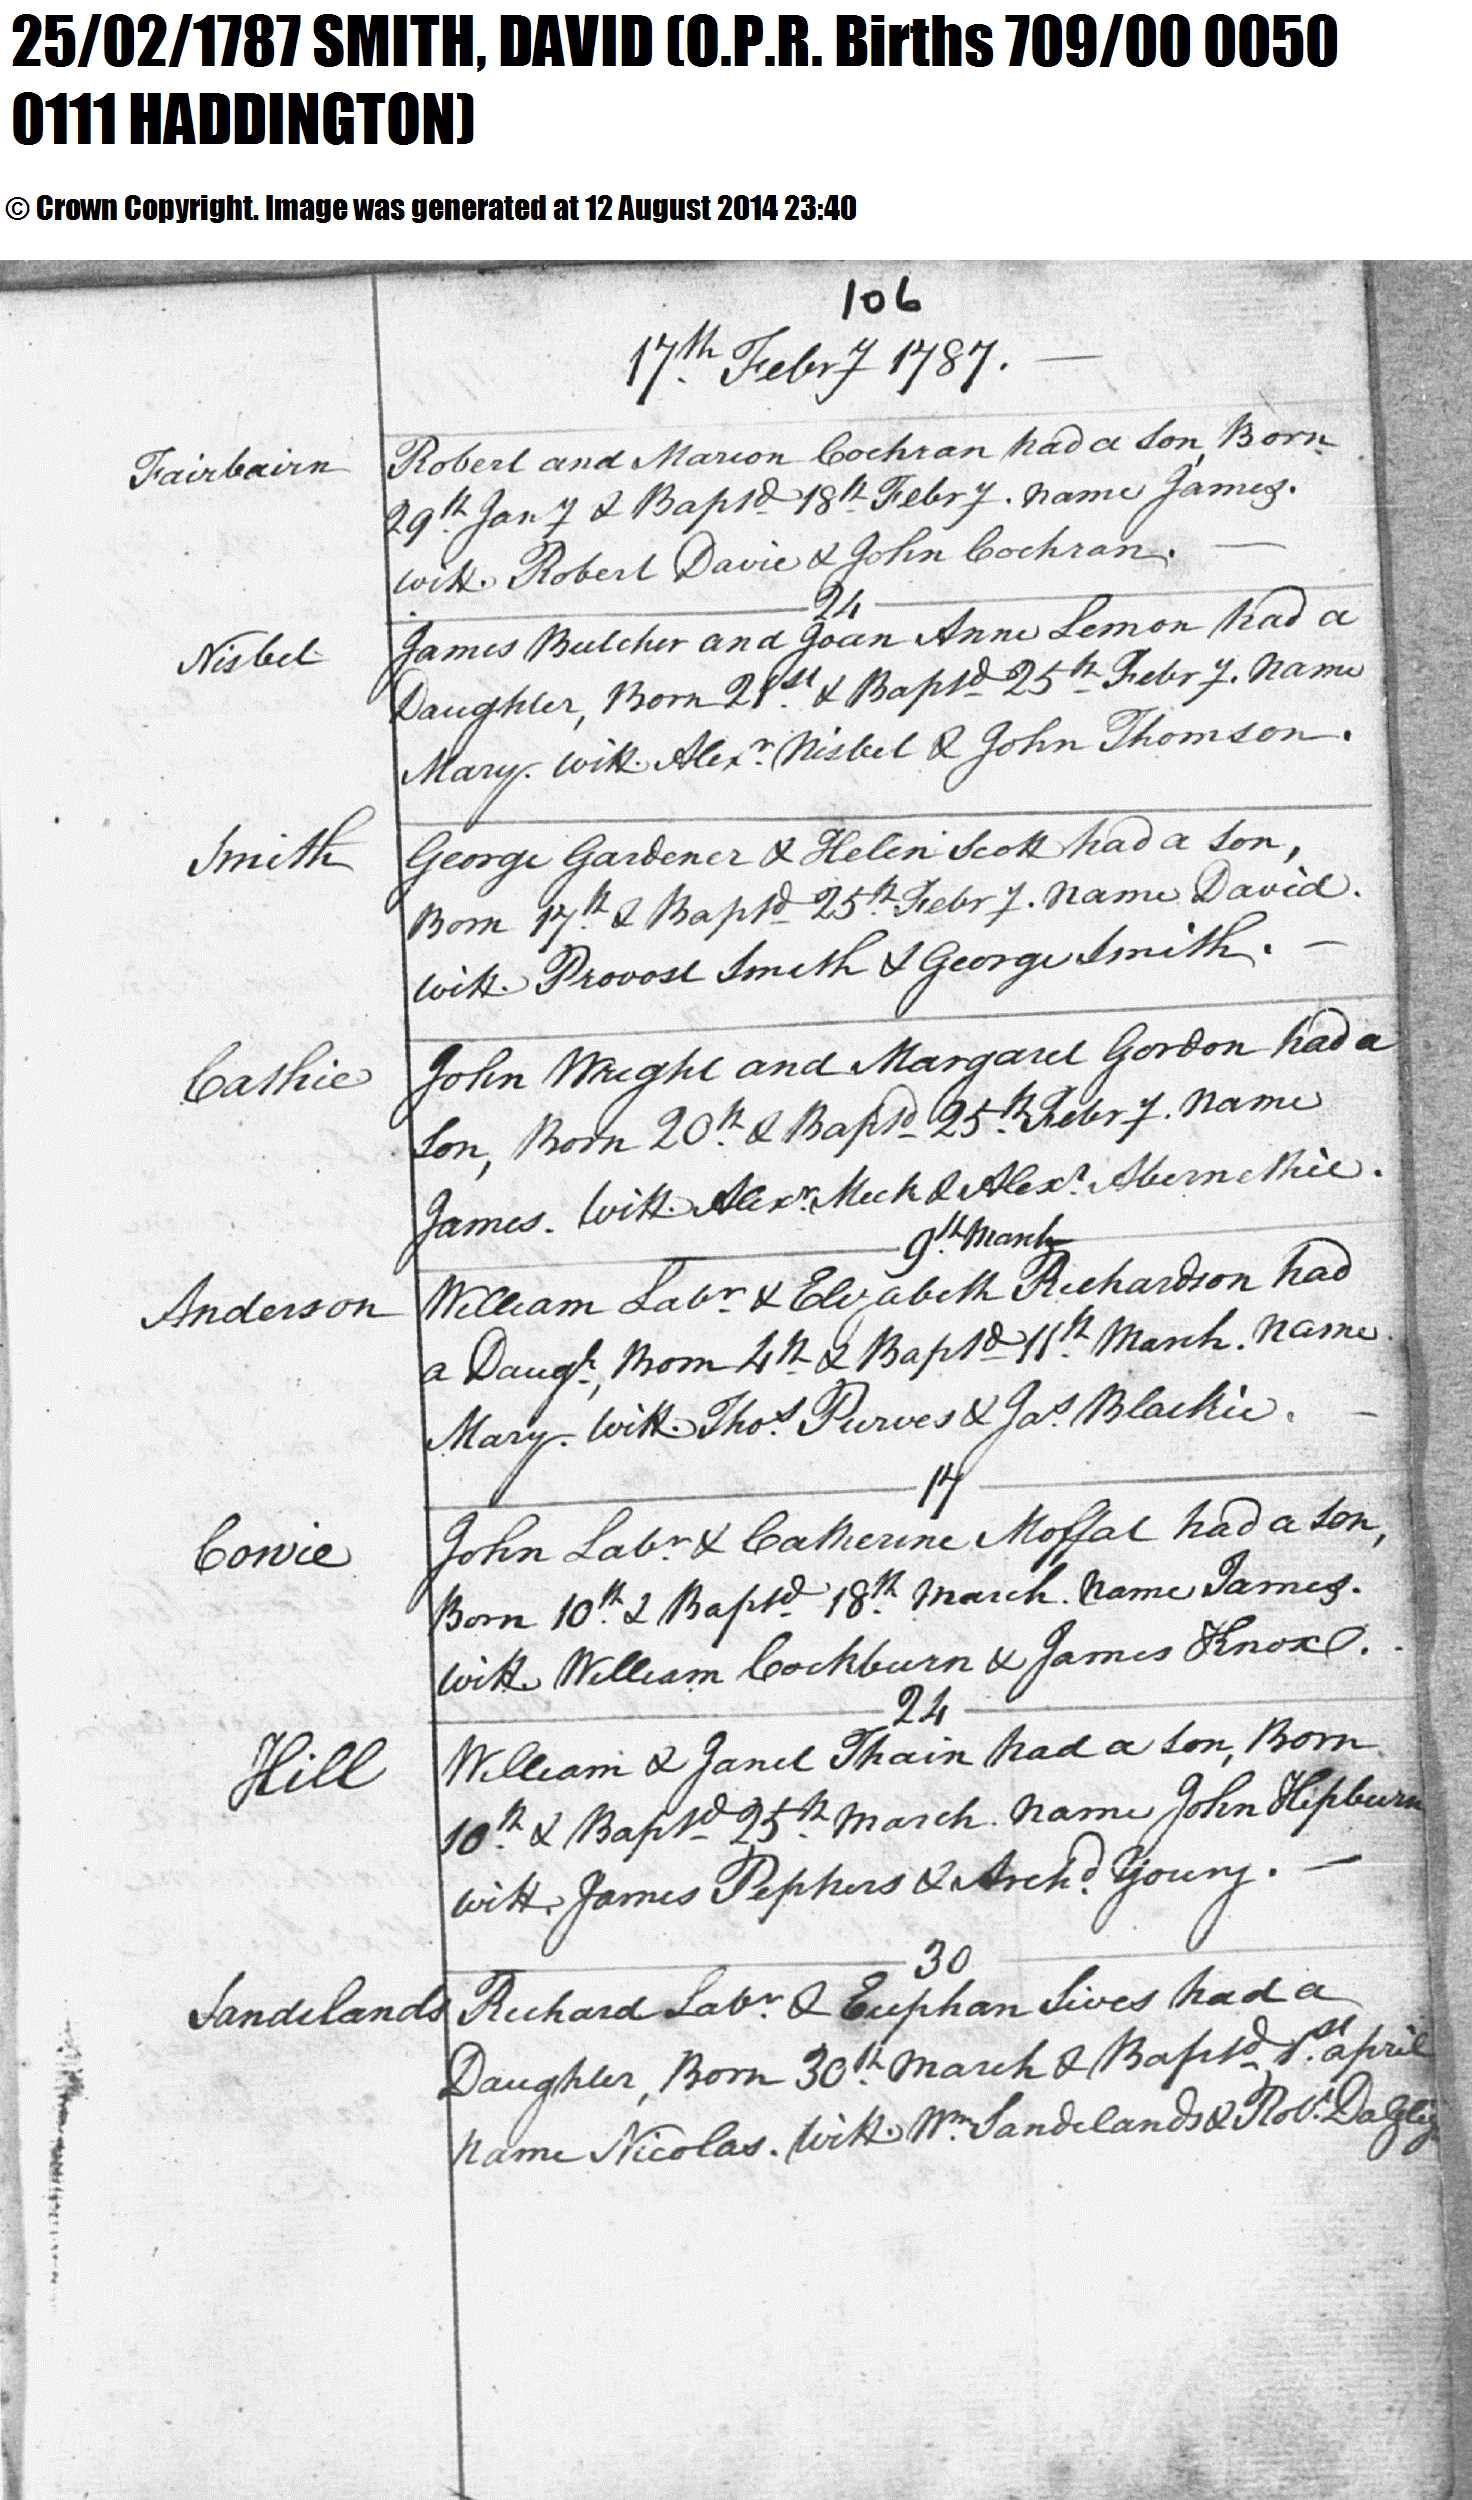 25/02/1787 SMITH, DAVID (O.P.R. Births 709/00 0050
0111 HADDINGTON)
© Crown Copyright. Image was generated at 12 August 2014 23:40
106
17th Febry 1787. —
Fairbairn Robert and Marion Cochran had a Son, Born
29th Jany & Baptd 18th Febry. name James.
witt. Robert Davie & John Cochran. —
24
Nisbet James Butcher and Joan Anne Lemon had a
Daughter, Born 21st & Baptd 25th Febry. Name
Mary. witt. Alexr Nisbet & John Thomson.
Smith George Gardener & Helen Scott had a Son,
Born 17th & Baptd 25th Febry. name David.
witt. Provost Smith & George Smith. —
Cathie John Wright and Margaret Gordon had a
Son, Born 20th & Baptd 25th Febry. Name
James. Witt. Alexr Meek & Alexr Abernethie.
9th March
Anderson William Labr & Elizabeth Richardson had
a Daugr, Born 4th & Baptd 11th March. Name
Mary. Witt. Thos Purves & Jas Blackie. —
17
Cowie John Labr & Catherine Moffat had a Son,
Born 10th & Baptd 18th March. Name James.
witt. William Cockburn & James Knox.
24
Hill William & Janet Thain had a Son, Born
10th & Baptd 25th March. Name John Hepburn
witt. James Pephers & Archd Young. —
30
Sandelands Richard Labr & Euphan Sives had a
Daughter, Born 30th March & Baptd 1st april
name Nicolas. Witt. Wm Sandelands & Robt